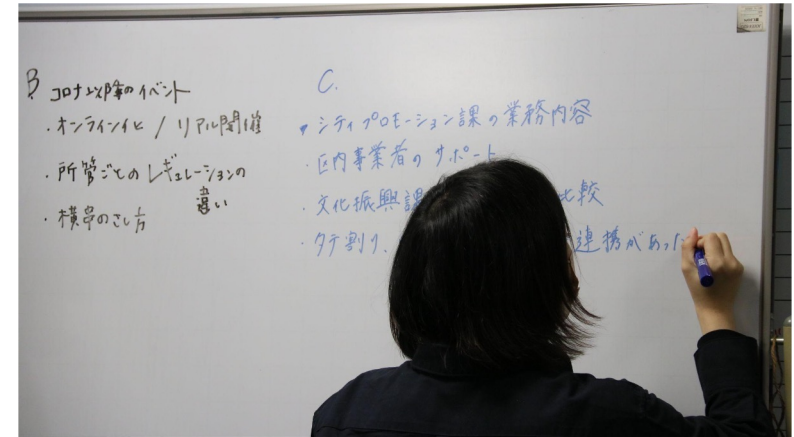 B コロナ以降のイベント
・オンライン化 / リアル開催
・所管ごとのレギュレーションの
違い
・横串のさし方
C.
・シティプロモーション課の業務内容
・区内事業者のサポート
・文化振興課 比較
・タテ割り、 連携があった